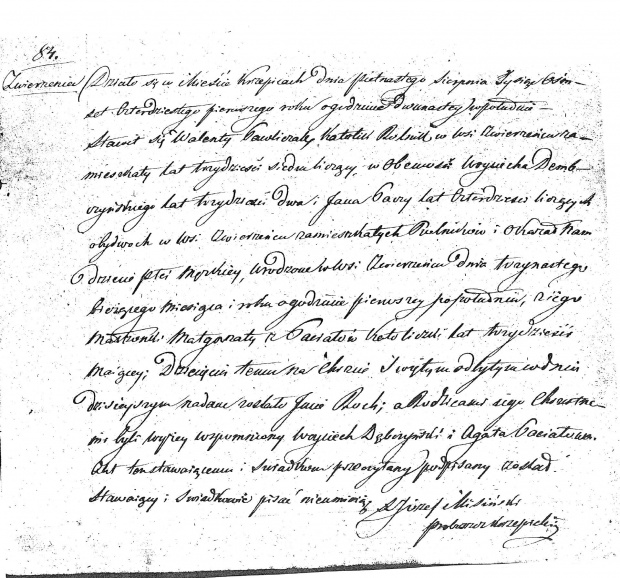 84.
Zwierzeniec Działo się w Mieście Krzepicach dnia piętnastego sierpnia Tysiąc Ośm-
set Czterdziestego pierwszego roku ogodzinie dwunastey wpołudnie
Stawił się Walenty Pawliczak, Katolik Rolnik w Wsi Zwierzeńcu za-
mieszkały lat trzydzieści siedm liczący, w Obecności Woyciecha Demb-
czyńskiego lat trzydzieści dwa i Jana lat Czterdzieści liczących
obydwoch w Wsi Zwierzeńcu zamieszkałych Rolników i Okazał Nam
dziecie płci Męzkiey, urodzone w Wsi Zwierzeńcu dnia trzynastego
bieżącego Miesiąca i roku ogodzinie pierwszey popołudniu, z iego
Małżonki Małgorzaty z Katoliczki lat trzydzieści
Maiącey; Dziecięciu temu na Chrzcie Swiętym odbytym wdniu
dzisieyszym nadane zostało Jmie Roch; a Rodzicami iego Chrzestne-
mi byli wyżey wspomniony Woyciech Dębczyński i Agata
Akt ten stawaiącemu i Swiadkom przeczytany podpisany został.
Stawaiący i Swiadkowie pisać nieumieią
X Józef Misiński
proboszcz Krzepicki